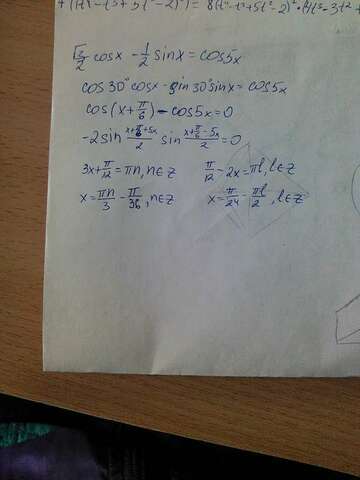 (t⁴ - t³ + 5t² - 2)³)' = 8(t⁴ - t³ + 5t² - 2)² · (4t³ - 3t² +
√3/2 cosx - 1/2 sinx = cos5x
cos30° cosx - sin30° sinx = cos5x
cos(x + π/6) - cos5x = 0
-2 sin (x + π/6 + 5x)/2 sin (x + π/6 - 5x)/2 = 0
3x + π/12 = πn, n∈z π/12 - 2x = πl, l∈z
x = πn/3 - π/36, n∈z x = π/24 - πl/2, l∈z